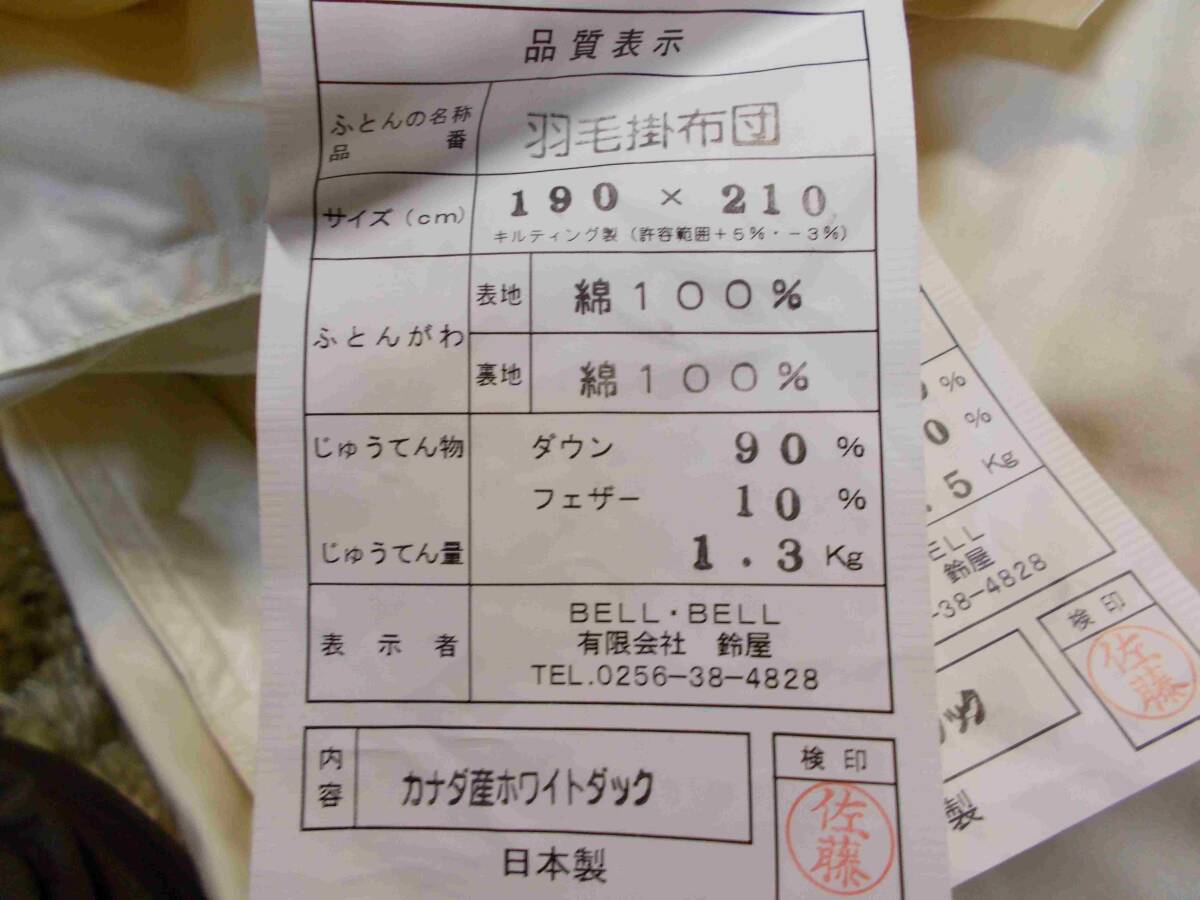 品質表示
ふとんの名称
品番
羽毛掛布団
サイズ(cm)
190 × 210
キルティング製(許容範囲+5%・-3%)
ふとんがわ
表地
綿100%
裏地
綿100%
じゅうてん物
ダウン 90 %
フェザー 10 %
じゅうてん量
1.3 Kg
表示者
BELL・BELL
有限会社 鈴屋
TEL.0256-38-4828
内容
カナダ産ホワイトダック
検印
佐藤
日本製
%
0 %
.5 Kg
ELL
鈴屋
-38-4828
検印
佐藤
ック
製